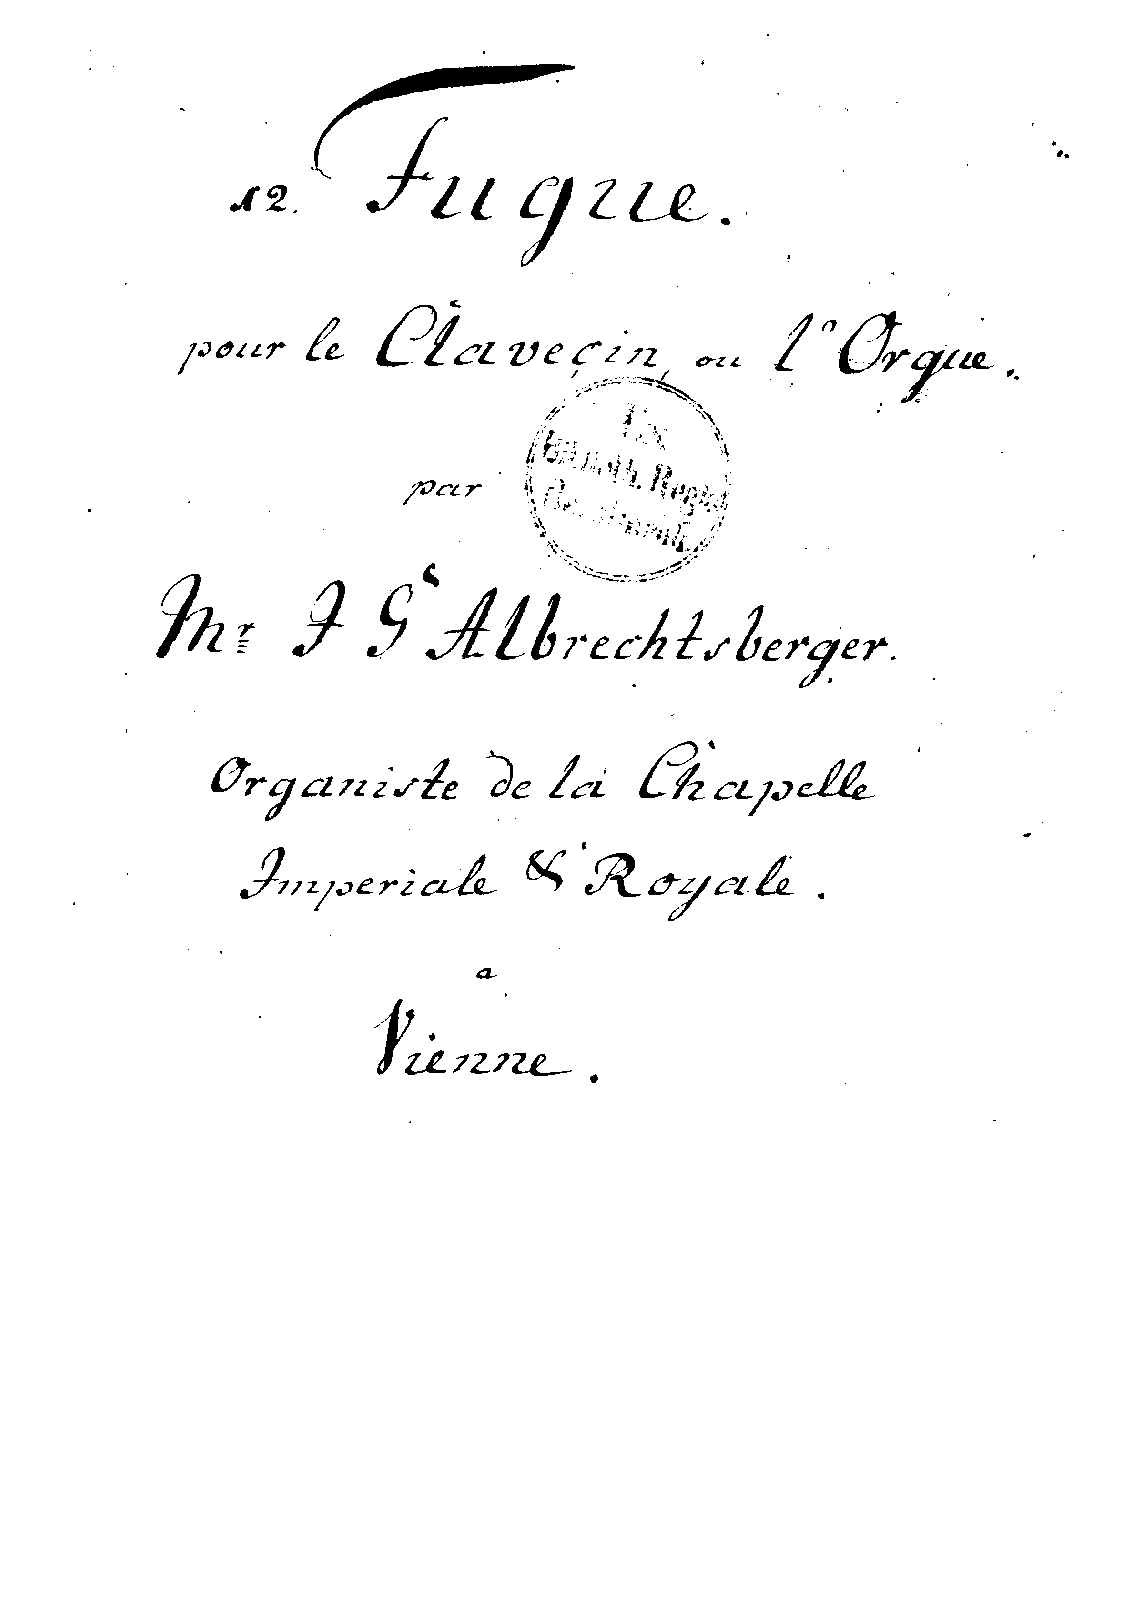 12. Fugue.
pour le Claveçin, ou l'Orgue.
par
Ex
Biblioth. Regia
Berolinensi
Mr J G Albrechtsberger.
Organiste de la Chapelle
Imperiale & Royale.
a
Vienne.